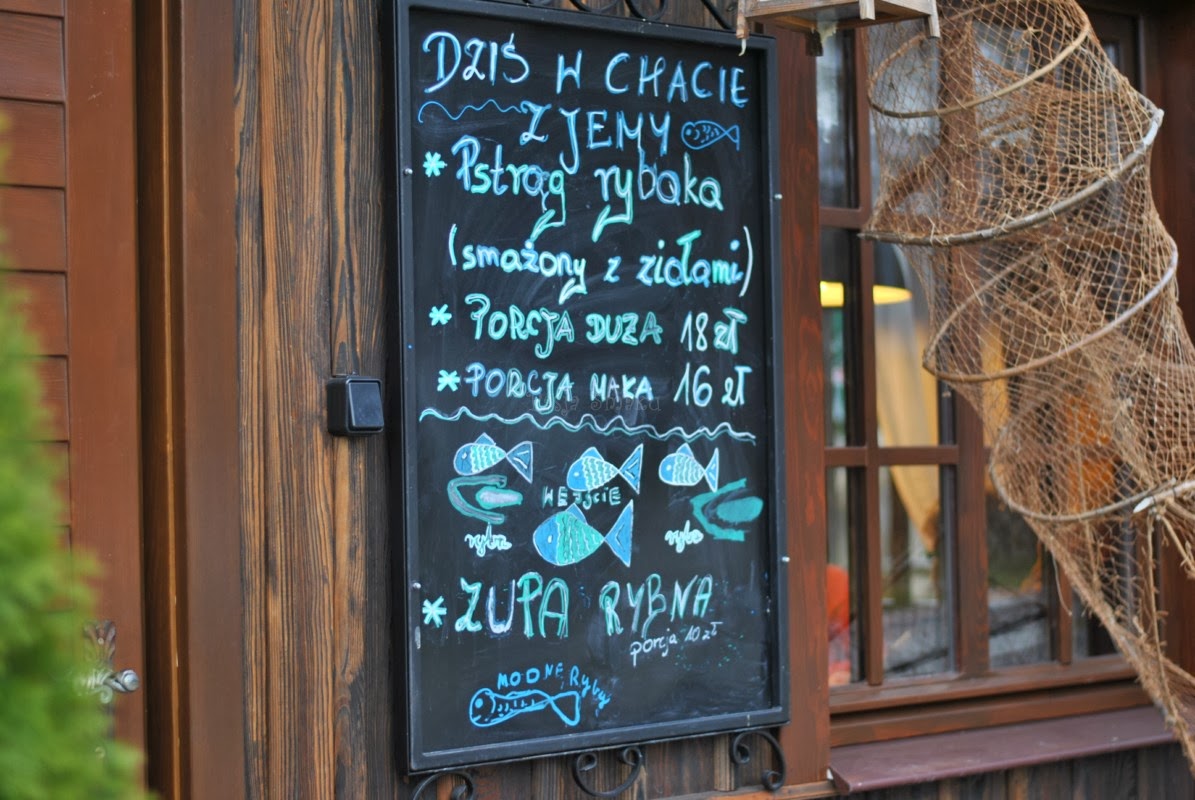 DZIŚ W CHACIE
ZJEMY
* Pstrąg rybaka
(smażony z ziołami)
* PORCJA DUZA 18 zł
* PORCJA MAŁA 16 zł
WEJŚCIE
ryby
ryby
* ZUPA RYBNA
porcja 10 zł
MODNE Ryby